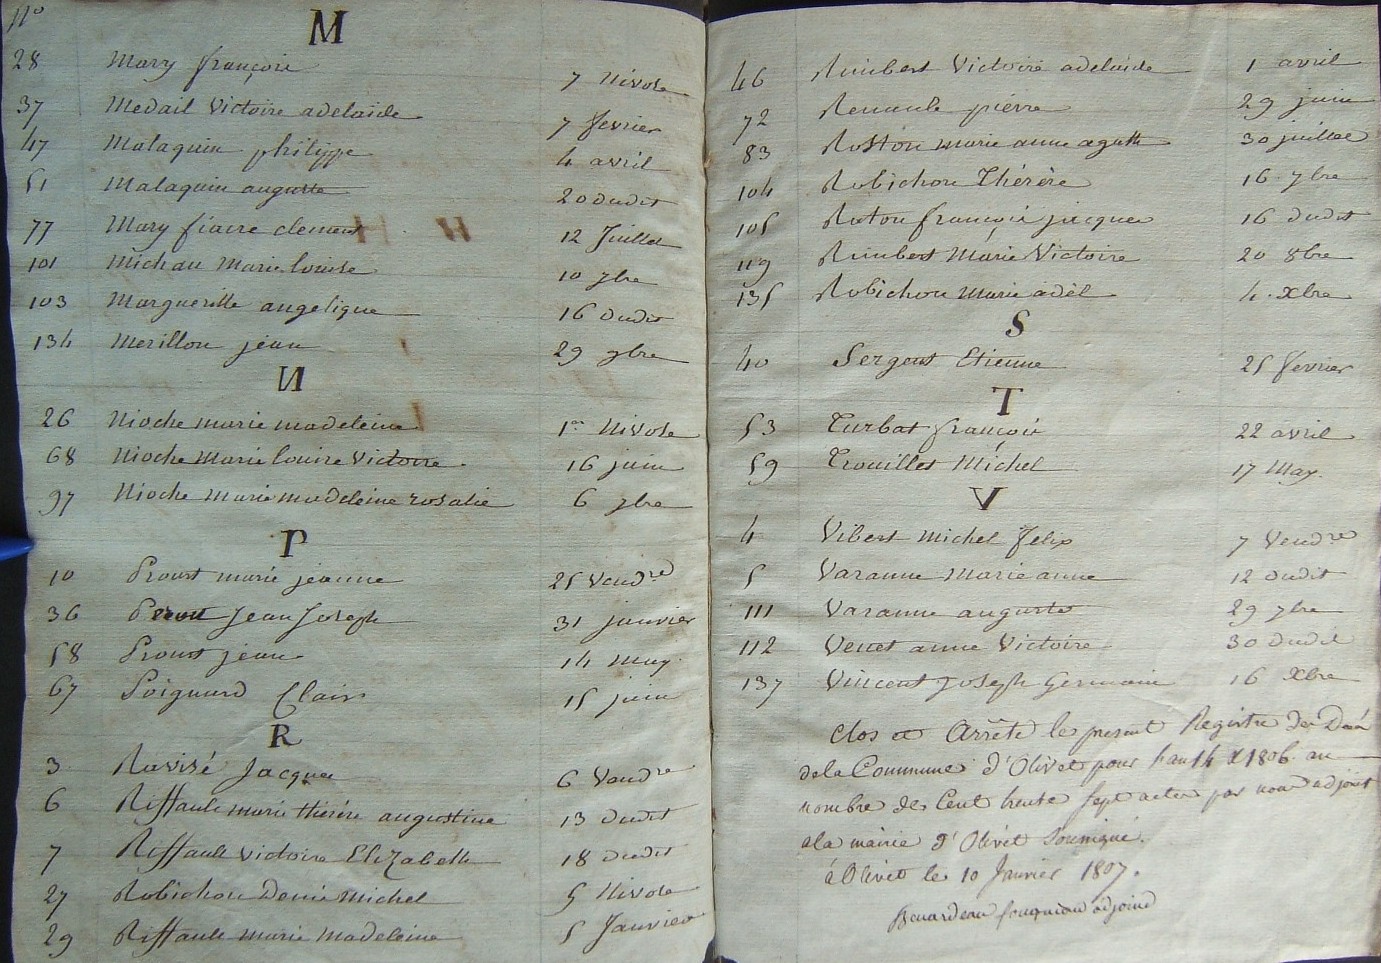 M
28 Mary françois 7 Nivose
37 Medail Victoire adelaïde 7 fevrier
47 Malaquin philippe 4 avril
51 Malaquin auguste 20 dudit
77 Mary fiacre clement 12 Juillet
101 Michau Marie louise 10 7bre
103 Marguerille angelique 16 dudit
134 Merillon jean 29 9bre
N
26 Nioche marie madeleine 1er Nivose
68 Nioche Marie louise Victoire 16 juin
97 Nioche marie madeleine rosalie 6 7bre
P
10 Proust marie jeanne 25 Vendre
36 Jean Joseph 31 janvier
58 Proust jean 14 may
67 Poignard Clair 15 juin
R
3 Ravisé Jacques 6 Vendre
6 Riffault marie thérése augustine 13 dudit
7 Riffault Victoire Elizabeth 18 dudit
27 Robichon Denis Michel 5 Nivose
29 Riffault marie madeleine 5 Janvier
46 Rimbert Victoire adelaide 1 avril
72 Renault pierre 29 juin
83 marie anne agath 30 juillet
104 Robichon Thérèse 16 7bre
105 Roton françois jacques 16 dudit
119 Rimbert Marie Victoire 20 8bre
135 Robichon Marie adèl 4 Xbre
S
40 Sergent Etienne 25 fevrier
T
53 Turbat françois 22 avril
59 Trouillet Michel 17 May
V
4 Vibert Michel felix 7 Vendre
5 Varanne Marie anne 12 dudit
111 Varanne auguste 29 7bre
112 Venet anne Victoire 30 dudit
137 Vincent Joseph Germain 16 Xbre
Clos et Arrêté le present Registre de
de la Commune d'Olivet pour l'an 14 & 1806 au
nombre de Cent trente sept actes par nous adjoint
a la mairie d'Olivet Soussigné.
à Olivet le 10 Janvier 1807.
adjoint